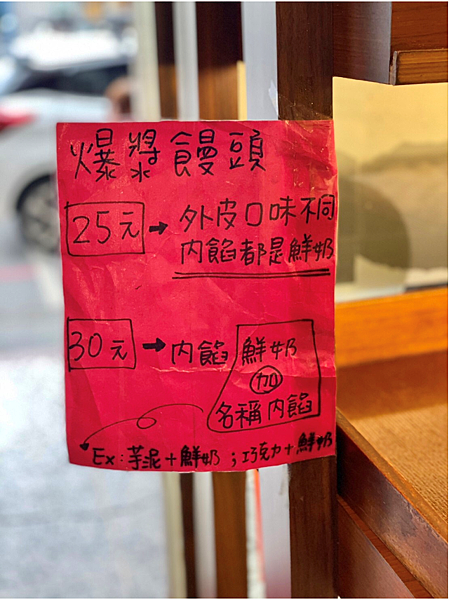 爆漿饅頭
25元→外皮口味不同
內餡都是鮮奶
30元→內餡鮮奶
加
名稱內餡
Ex:芋泥+鮮奶;巧克力+鮮奶